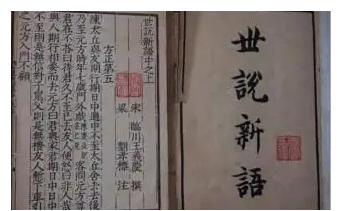 世說新語中之上
宋 臨川王義慶 撰
梁 劉孝標 注
方正第五
陳太丘與友期行期日中過中不至太丘舍去去後
乃至元方時年七歲門外戲
客問元方尊
君在不答曰待君久不至已去友人便怒曰非人哉
與人期行相委而去元方曰君與家君期日中日中
不至則是無信對子罵父則是無禮友人慚下車引
之元方入門不顧
世說新語